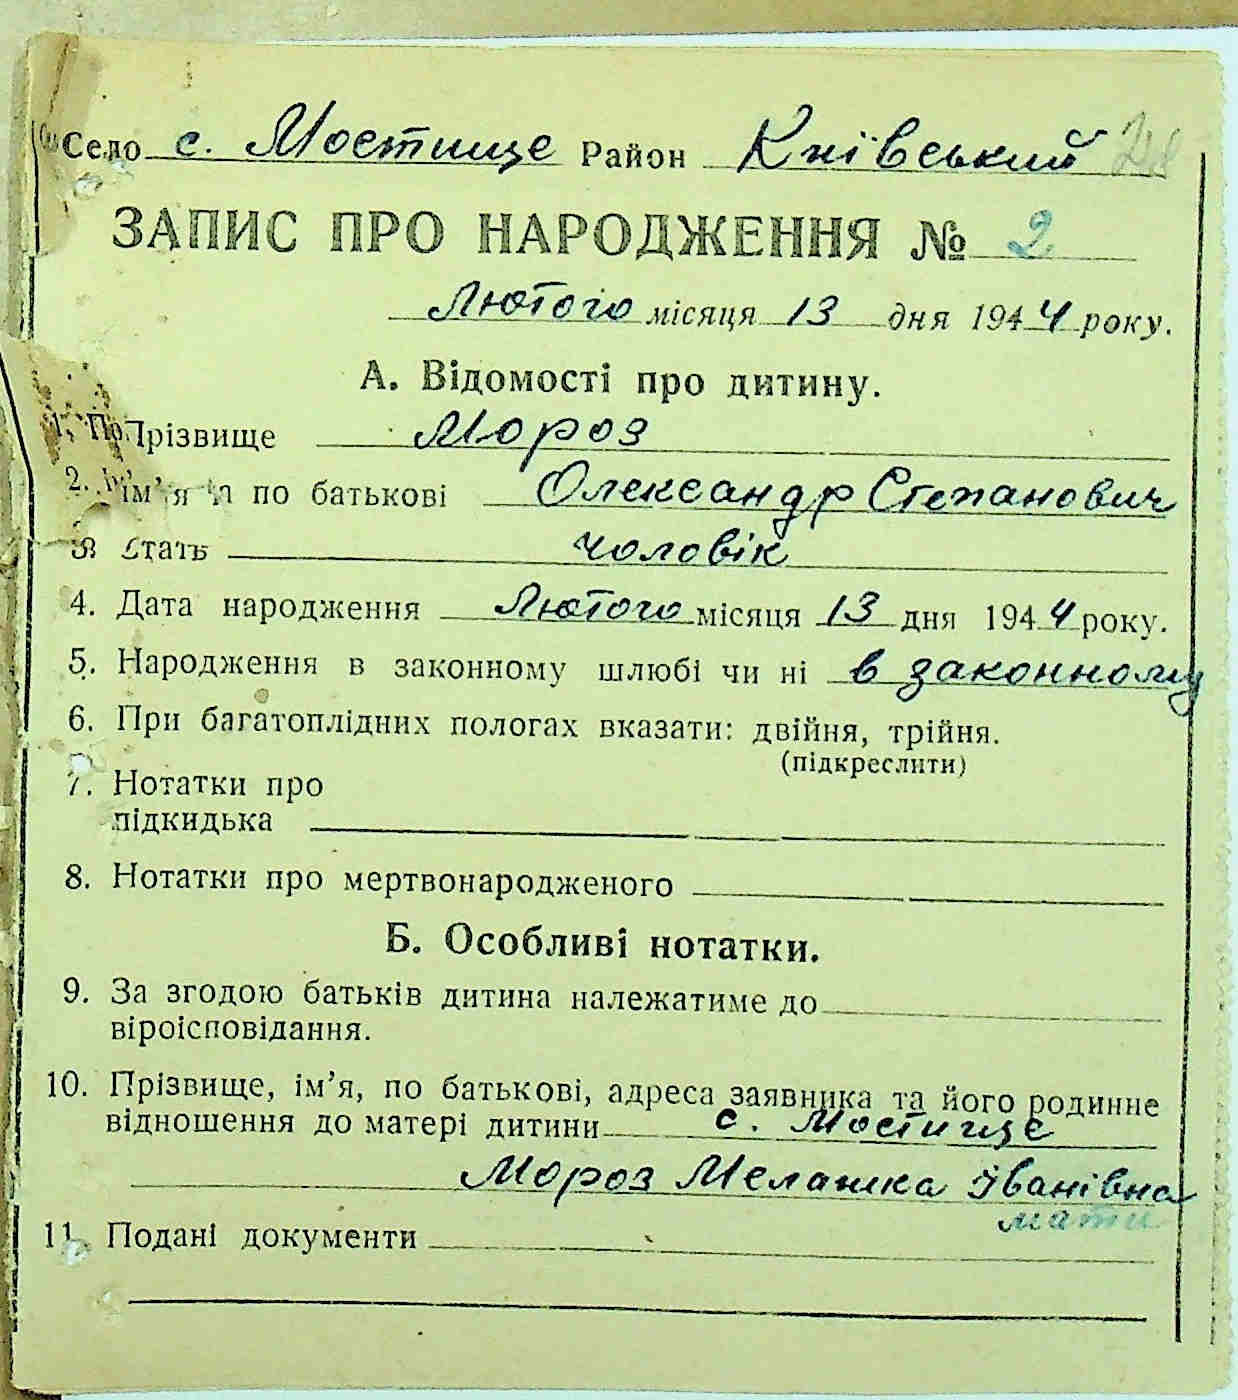 Село с. Мостище Район Київський
ЗАПИС ПРО НАРОДЖЕННЯ № 2
Лютого місяця 13 дня 1944 року.
А. Відомості про дитину.
1. Прізвище Мороз
2. Ім'я та по батькові Олександр Степанович
3. Стать чоловік
4. Дата народження Лютого місяця 13 дня 1944 року.
5. Народження в законному шлюбі чи ні в законному
6. При багатоплідних пологах вказати: двійня, трійня.
(підкреслити)
7. Нотатки про
підкидька
8. Нотатки про мертвонародженого
Б. Особливі нотатки.
9. За згодою батьків дитина належатиме до
віроісповідання.
10. Прізвище, ім'я, по батькові, адреса заявника та його родинне
відношення до матері дитини с. Мостище
Мороз Мелашка Іванівна
мати
11. Подані документи